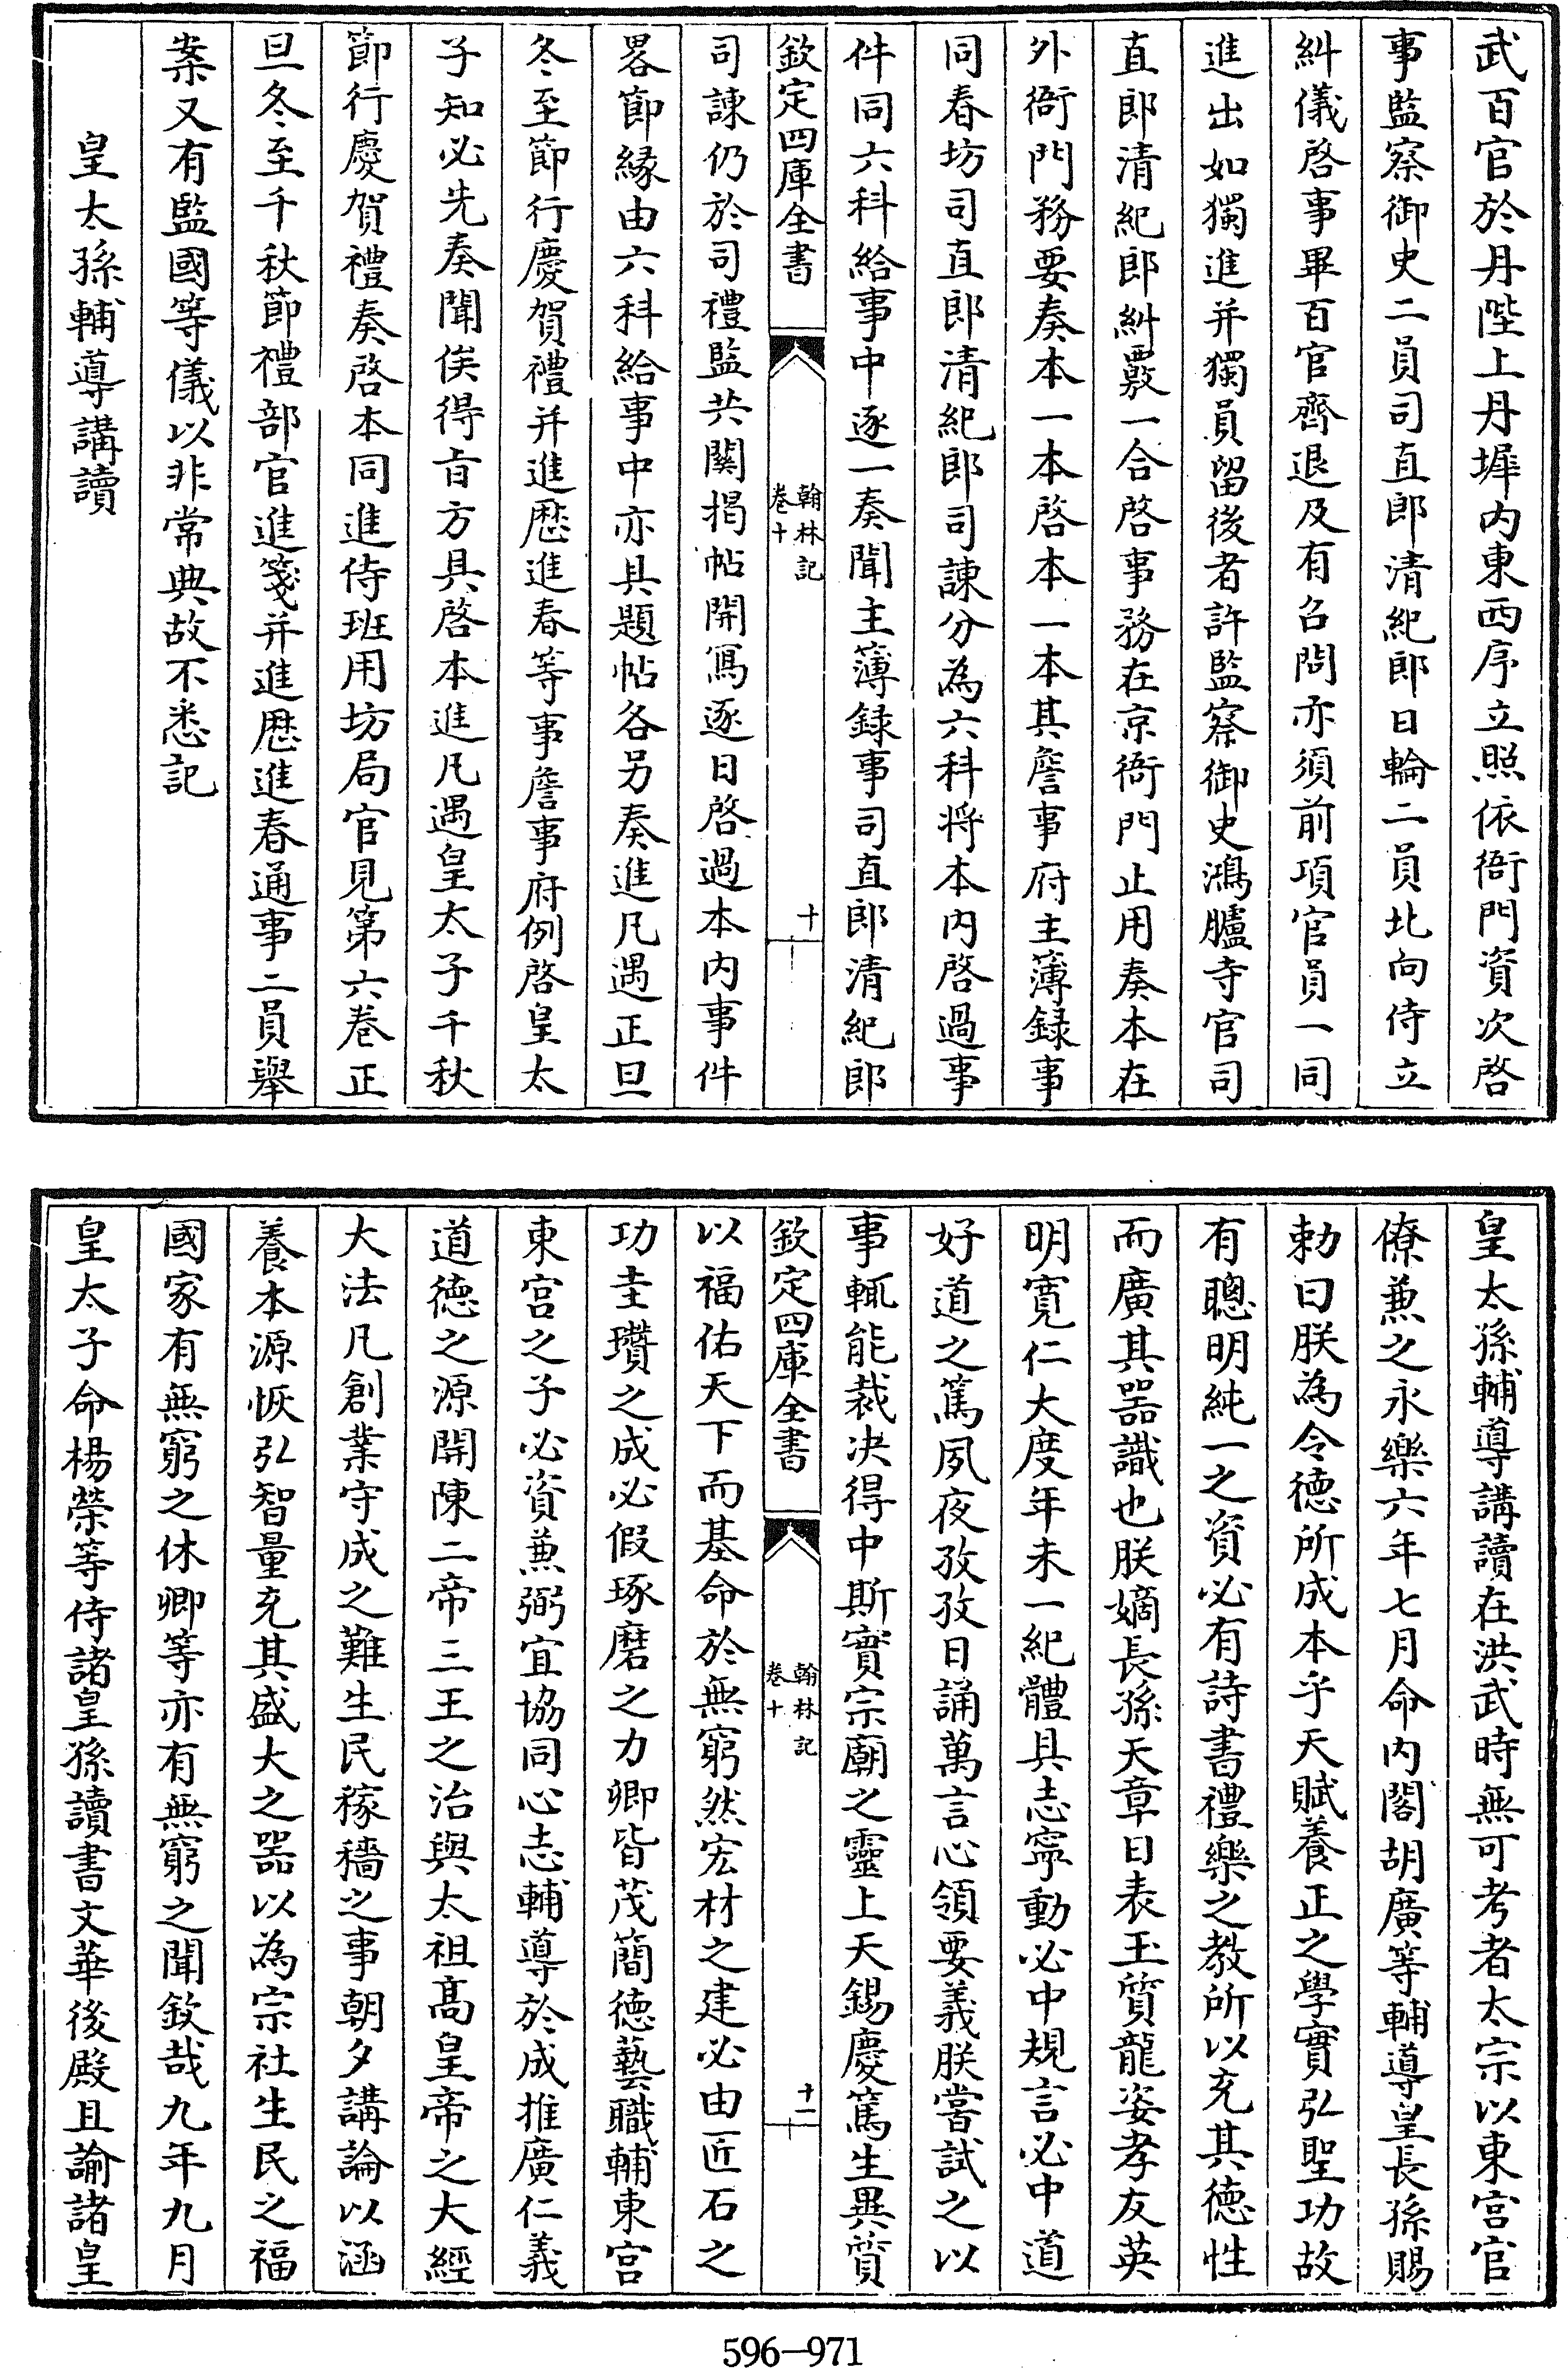 武百官於丹陛上丹墀内東西序立照依衙門資次啓
事監察御史二員司直郎清紀郎日輪二員北向侍立
糾儀啓事畢百官齊退及有召問亦須前項官員一同
進出如獨進并獨員留後者許監察御史鴻臚寺官司
直郎清紀郎糾覈一合啓事務在京衙門止用奏本在
外衙門務要奏本一本啓本一本其詹事府主簿録事
同春坊司直郎清紀郎司諫分為六科将本内啓過事
件同六科給事中逐一奏聞主簿録事司直郎清紀郎
欽定四庫全書
翰林記
卷十
十
司諫仍於司禮監共關揭帖開寫逐日啓過本内事件
畧節緣由六科給事中亦具題帖各另奏進凡遇正旦
冬至節行慶賀禮并進厯進春等事詹事府例啓皇太
子知必先奏聞俟得㫖方具啓本進凡遇皇太子千秋
節行慶賀禮奏啓本同進侍班用坊局官見第六卷正
旦冬至千秋節禮部官進箋并進厯進春通事二員舉
案又有監國等儀以非常典故不悉記
皇太孫輔導講讀
皇太孫輔導講讀在洪武時無可考者太宗以東宫官
僚兼之永樂六年七月命内閣胡廣等輔導皇長孫賜
勅曰朕為令德所成本乎天賦養正之學實弘聖功故
有聰明純一之資必有詩書禮樂之教所以充其德性
而廣其器識也朕嫡長孫天章日表玉質龍姿孝友英
明寛仁大度年未一紀體具志寧動必中規言必中道
好道之篤夙夜孜孜日誦萬言心領要義朕嘗試之以
事輒能裁决得中斯實宗廟之靈上天錫慶篤生異質
欽定四庫全書
翰林記
卷十
十一
以福佑天下而基命於無窮然宏材之建必由匠石之
功圭瓚之成必假琢磨之力卿皆茂簡德藝職輔東宫
東宫之子必資兼弼宜協同心志輔導於成推廣仁義
道德之源開陳二帝三王之治與太祖髙皇帝之大經
大法凡創業守成之難生民稼穡之事朝夕講論以涵
養本源恢弘智量充其盛大之器以為宗社生民之福
國家有無窮之休卿等亦有無窮之聞欽哉九年九月
皇太子命楊榮等侍諸皇孫讀書文華後殿且諭諸皇
596-971